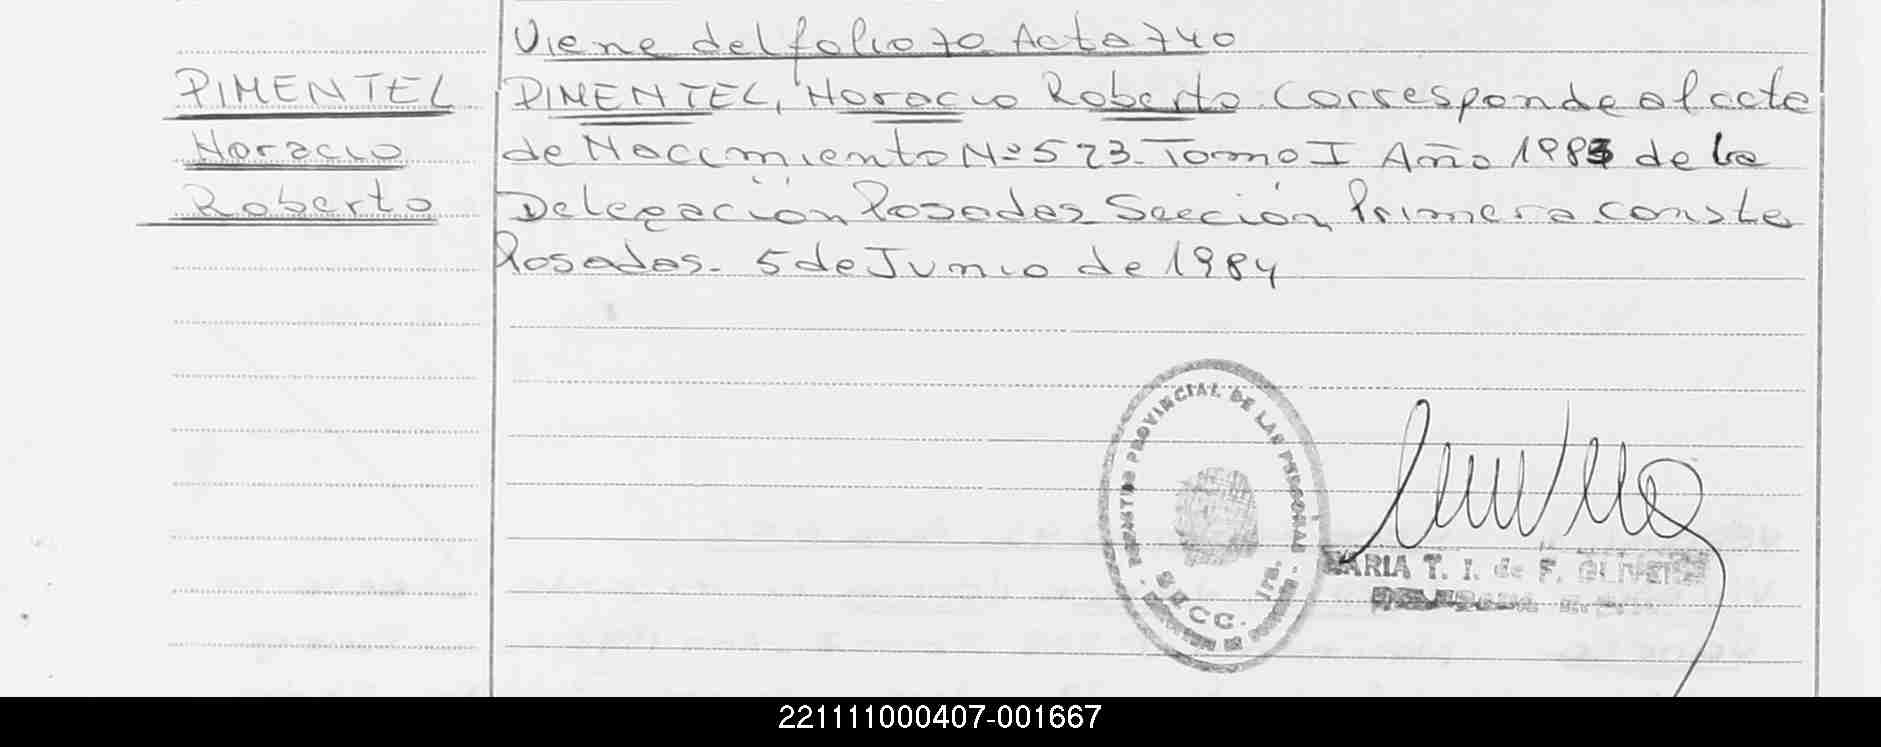 Viene del folio 70 Acta 740
PIMENTEL
Horacio
Roberto
PIMENTEL, Horacio Roberto. Corresponde al acta
de Nacimiento Nº 573. Tomo I Año 1983 de la
Delegación Posadas Sección Primera conste
Posadas. 5 de Junio de 1984
PROVINCIAL DE LAS PERSONAS
SECC. 1RA.
MARIA T. I. de F. OLIVEIRA
221111000407-001667